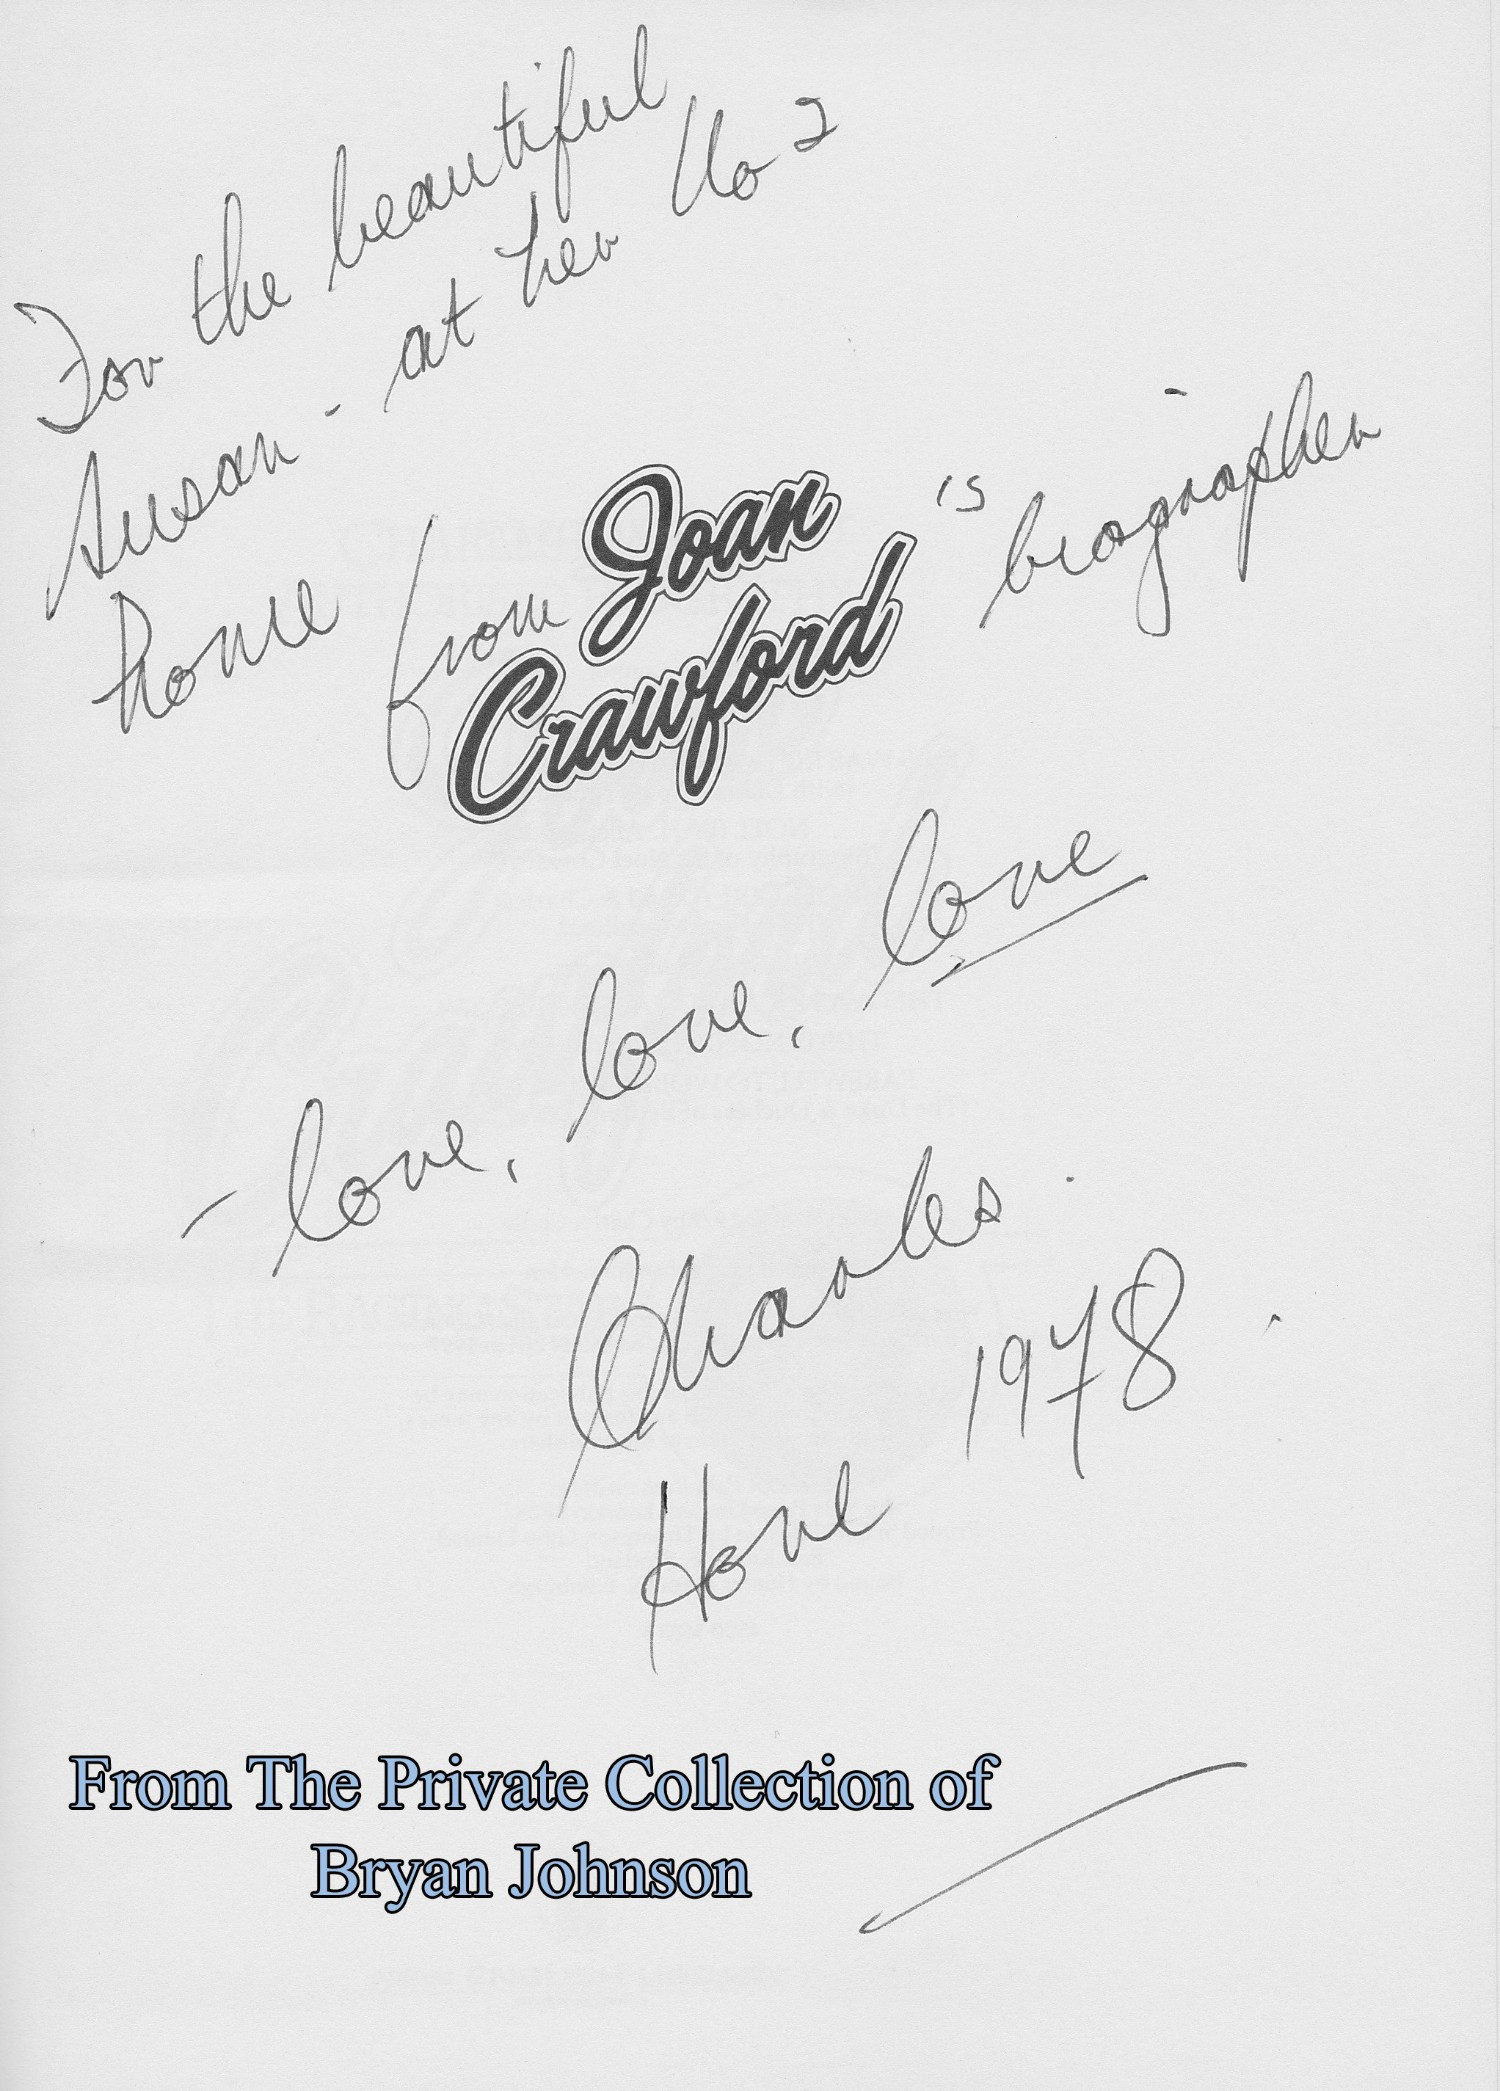 For the beautiful
Susan - at her No 2
home from Joan Crawford 's biographer
- love, love, love
Charles.
Hove 1978.
From The Private Collection of
Bryan Johnson